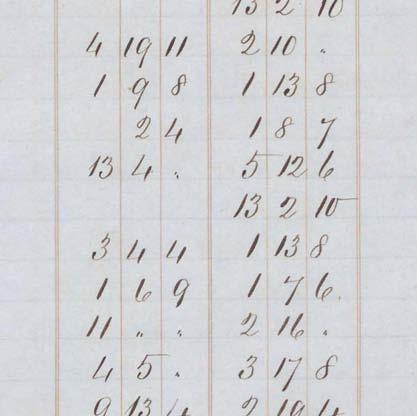 13 2 10
4 19 11 2 10 "
1 9 8 1 13 8
2 4 1 8 7
13 4 " 5 12 6
13 2 10
3 4 4 1 13 8
1 6 9 1 7 6.
11 " " 2 16 "
4 5 " 3 17 8
9 13 4 2 19 4